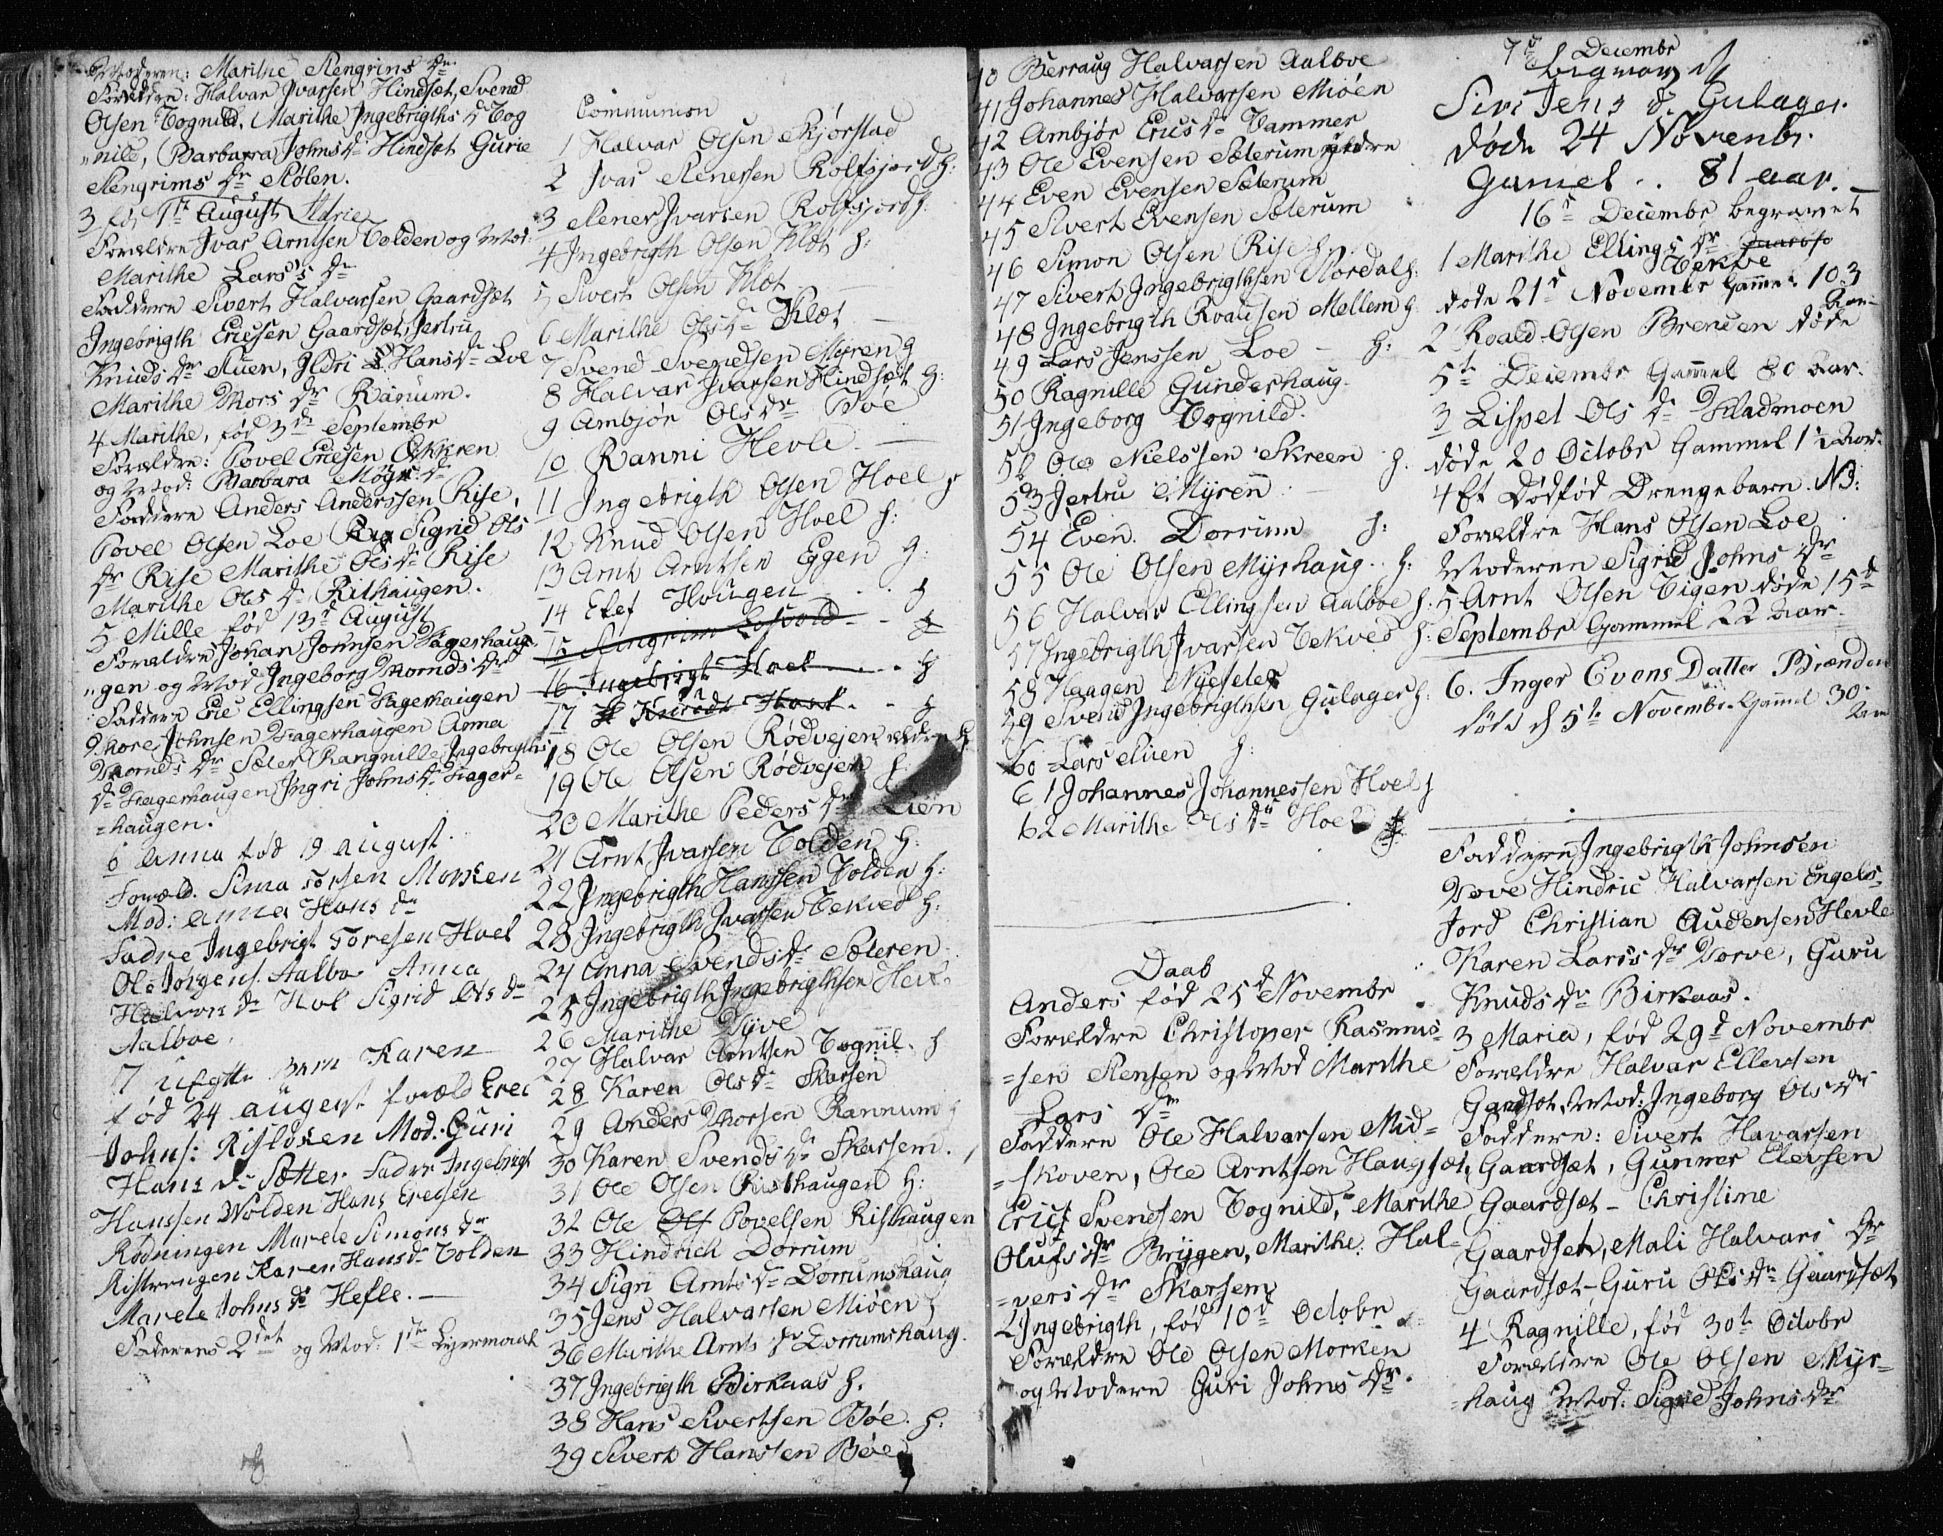 Moderen: Marithe Stengrims dr
Forældre: Halvar Ivarsen Hindsæt, Svend
Olsen Tognild, Marithe Ingebrigths d Tog
"nild, Barbarra Johns dr Hindsæt Gurie
Stengrims dr Stølen.
3 fød 1st August Ildrie
Forældre Ivar Arntsen Volden og Mod:
Marithe Lars's dr
Faddere Sivert Halvarsen Gaardsæt
Ingebrigth Ericsen Gaardsæt, Jertru
Knuds dr Stuen, Ildri Hans dr Loe
Marithe Thors dr Ranum.
4 Marithe, fød 3de Septembr
Forældre: Povel Ericsen
og Mod: Barbara dr
Faddere Anders Anderssen Rise,
Povel Olsen Loe Sigrid Ols
dr Rise Marithe Ols dr Rise
Marithe Ols dr Risthaugen.
5 Mille fød 13d August
Forældre Johan Johnsen Hagerhau-
"gen og Mod Ingeborg Thornds dr
Faddere Eric Ellingsen Hagerhaugen
Thore Johnsen Hagerhaugen Anna
Thornds dr Sæter Rangnille Ingebrigths
dr Hagerhaugen, Ingri Johns dr Hager-
=haugen.
6 Anna fød 19 august.
Foræld. Simon Torsen Morken
Mod: Anna Hans dr
Fadre Ingebrigt Toresen Hoel
Ole Jørgens. Aalbo Anna
Halvors dr Hol Sigrid Ols dr
Aalboe.
7 uægte barn Karen
fød 24 august foræld Eric
Johns: Mod: Guri
Hans dr Sætter Fadre Ingebrigt
Hanssen Wolden Hans Eregsen
Rødningen Marele Simons dr
Karen Hans dr Volden
Marele Johns dr Hefle.
Faderens 2det og Mod: 1ste Lejermaal
Communion
1 Halvar Olsen Skjørstad
2 Ivar Stenersen Rolfsjord h:
3 Stener Ivarsen Rolfsjord h:
4 Ingebrigth Olsen Klet h:
5 Sivert Olsen Klæt
6 Marithe Ols dr Klæt
7 Svend Svendsen Myren h
8 Halvar Ivarsen Hindsæt h:
9 Ambjør Ols dr Boe
10 Ranni Hevle
11 Ingebrigth Olsen Hoel h
12 Knud Olsen Hoel h:
13 Arnt Arntsen Eggen h:
14 Elef Hougen . . . h
15 Stengrim Losvold - - h
16 Ingebrigt Hoel . . . h
17 Knudt Hoel . . h
18 Ole Olsen Rødvejen ældre h
19 Ole Olsen Rødvejen h:
20 Marithe Peders dr Lien
21 Arnt Ivarsen Volden h:
22 Ingebrigth Hanssen Volden h:
23 Ingebrigth Ivarsen Tekved h:
24 Anna Svends dr Sæteren
25 Ingebrigth Ingebrigthsen
26 Marithe
27 Halvar Arntsen Tognil. h
28 Karen Ols dr Skarsen
29 Anders Thorsen Rannum h
30 Karen Svends dr Skarsem.
31 Ole Olsen Risthaugen h:
32 Ole Povelsen Risthaugen
33 Hindrich Dorrum
34 Sigri Arnts dr Dorrumshaug
35 Jens Halvarsen Miøen h
36 Marithe Arnts dr Dorrumshaug.
37 Ingebrigth Birkaas h.
38 Hans Sivertsen Bøe. h:
39 Sivert Hanssen Bøe
40 Berraug Halvarsen Aalboe
41 Johannes Halvarsen Miøen
42 Ambjør Erics dr Vammer
43 Ole Evensen Sæterum yldre
44 Even Evensen Sæterum
45 Sivert Evensen Sæterum
46 Simon Olsen Rise h:
47 Sivert Ingebrigthsen Nordal h:
48 Ingebrigth Roaldsen Mellem h
49 Lars Jenssen Loe - h:
50 Ragnille Gunderhaug.
51 Ingeborg Tognild.
52 Ole Nielssen Skreen h.
53 Jertru Myren
54 Even Dorrum h:
55 Ole Olsen Myrhaug . . h:
56 Halvar Ellingsen Aalboe h:
57 Ingebrigth Ivarsen Tekved h:
58 Haagen
59 Svend Ingebrigthsen Gulager h:
60 Lars Stuen h:
61 Johannes Johannessen Hoel h
62 Marithe Ols dr Hoel
Daab
Anders fød 25d Novembr
Forældre Christoper Rasmus-
=sen Stensen og Mod Marithe
Lars dr
Faddere Ole Halvarsen Mid=
=skoven, Ole Arntsen Haugsæt,
Erick Svendsen Tognild, Marithe
Olufs dr Bryggen, Marithe Hal=
=vers dr Skarsem
2 Ingebrigth, fød 10d Octobr
Forældre Ole Olsen Morken
og Modern Guri Johns dr.
7d Decembr
begravet
Siri Jens d. Gulager
døde 24 Novembr.
Gamel . . 81 aar.
16d Decembr begravet
1 Marithe Ellings dr
Tekve
døde 21d Novembr Gammel 103
Aar
2 Roald Olsen Brenden døde
5te Decembr Gammel 80 Aar.
3 Lispet Ols dr Fladmoen
døde 20 Octobr Gammel 1½ Aar.
4 Et Dødfød Drengebarn. NB:
Forældre Hans Olsen Loe
Moderen Sigrid Johns dr
5 Arnt Olsen Vigen døde 15d
Septembr Gammel 22 Aar.
6. Inger Evens Datter Brænden
døde d 5te Novembr. Gammel 30
Aar
Faddern Ingebrigth Johnsen
Hindric Halvarsen Engels-
Jord Christian Audensen Hevle
Karen Larss dr Vorve, Guru
Knuds dr Birkaas.
3 Maria, fød 29d Novembr
Forældre Halvar Ellevsen
Gardsæt, Mod: Ingeborg Ols dr
Faddere: Sivert Havarsen
Gaardsæt, Gunner Elevsen
Gaardsæt - Christine
Gaardset, Mali Halvars dr
Gaardsæt - Guru Ols dr Gaardsæt
4 Ragnille, fød 30te Octobr
Forældre Ole Olsen Myr=
=haug Mod: Sigrid Johns dr